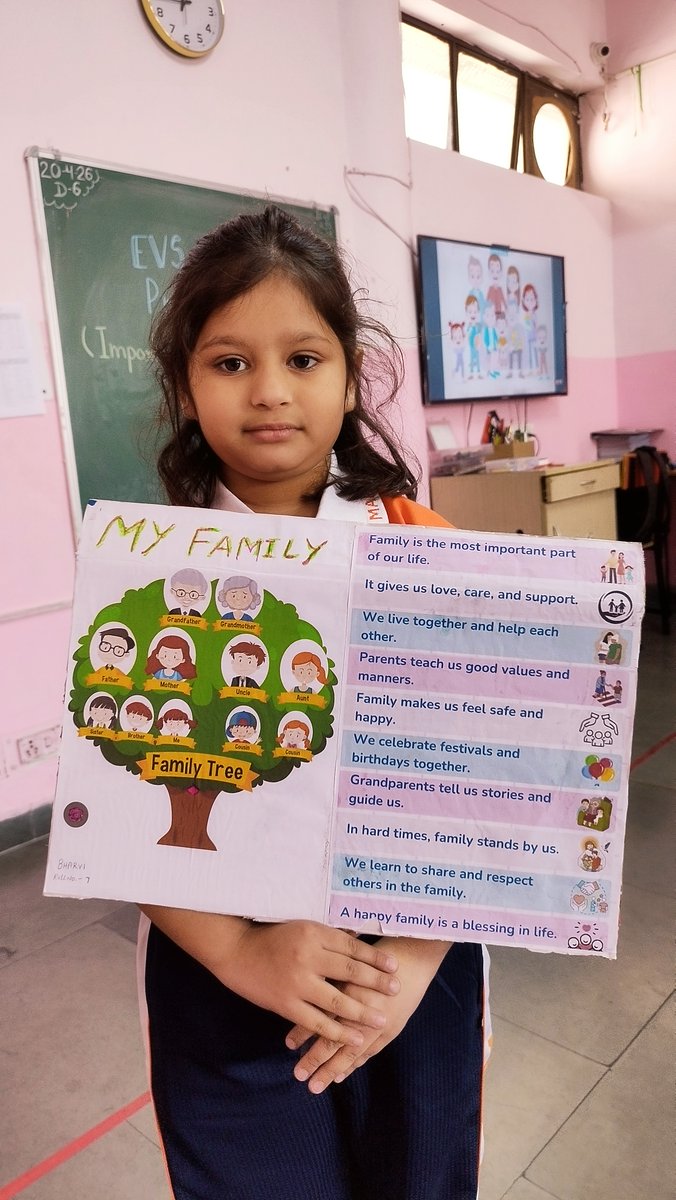 20-4-26
D-6
EVS
(Impo
MA
MY FAMILY
Grandfather
Grandmother
Father
Mother
Uncle
Aunt
Sister
Brother
Me
Cousin
Cousin
Family Tree
BHARVI
Family is the most important part
of our life.
It gives us love, care, and support.
We live together and help each
other.
Parents teach us good values and
manners.
Family makes us feel safe and
happy.
We celebrate festivals and
birthdays together.
Grandparents tell us stories and
guide us.
In hard times, family stands by us.
We learn to share and respect
others in the family.
A happy family is a blessing in life.